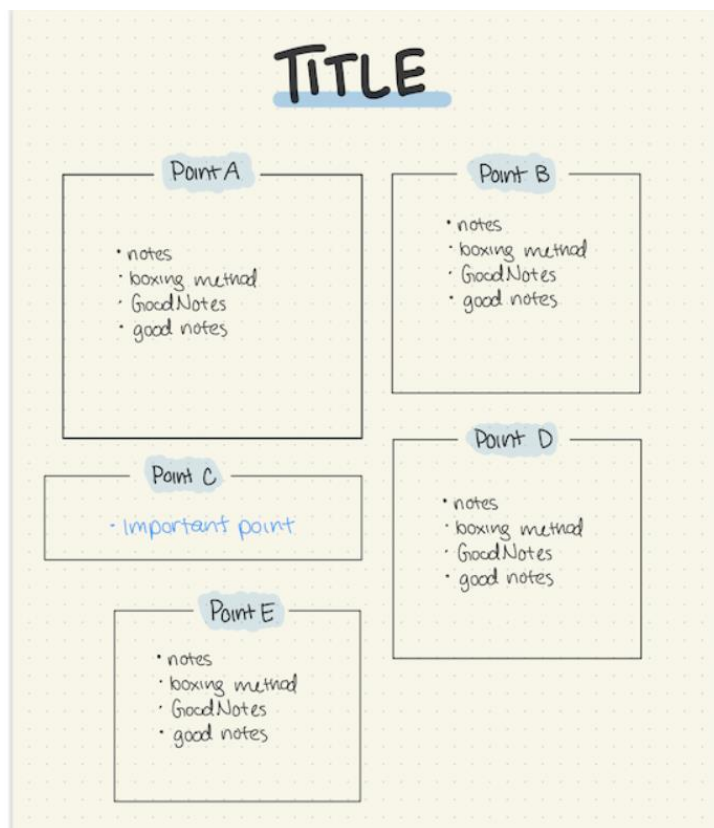 TITLE
Point A
• notes
• boxing method
• GoodNotes
• good notes
Point B
• notes
• boxing method
• GoodNotes
• good notes
Point C
• Important point
Point D
• notes
• boxing method
• GoodNotes
• good notes
Point E
• notes
• boxing method
• GoodNotes
• good notes